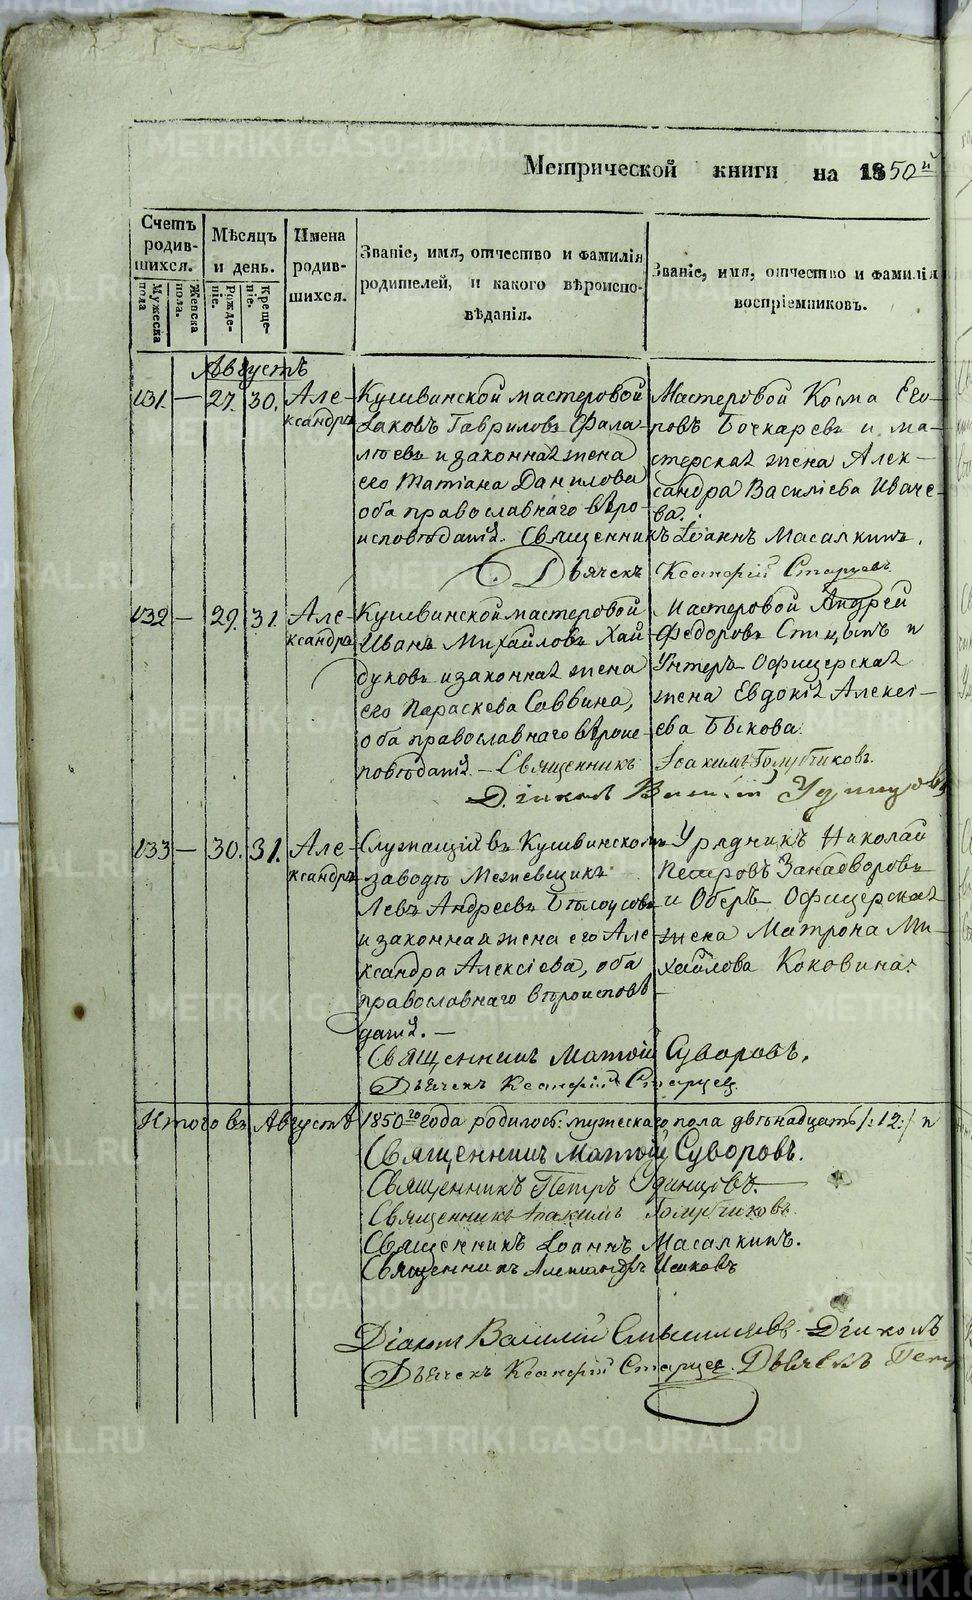 Метрической книги на 1850й
Счетъ родив-шихся.
Мужеска пола
Женска пола.
Мѣсяцъ и день.
Рожде-ніе.
Креще-ніе.
Имена родив-шихся.
Званіе, имя, отчество и фамилія
родителей, и какого вѣроиспо-
вѣданія.
Званіе, имя, отчество и фамилія
воспріемниковъ.
Августъ
131. — 27. 30. Але-
ксандръ
Кушвинской мастеровой
Іаковъ Гавриловъ Фала-
лѣевъ и законная жена
его Татіана Данилова
оба православнаго вѣро-
исповѣданія. Священникъ Іоаннъ Масалкинъ.
Мастеровой Косма Его-
ровъ Бочкаревъ и ма-
стерская жена Алек-
сандра Василіева Иваче-
ва.
Дьячекъ Ксенофій Старцевъ
132 — 29. 31. Але-
ксандръ
Кушвинской мастеровой
Иванъ Михайловъ Хай-
дуковъ и законная жена
его Параскева Саввина,
оба православнаго вѣроис-
повѣданія. — Священникъ Іоакимъ Голубчиковъ.
Мастеровой Андрей
Федоровъ Спицынъ и
Унтеръ-Офицерская
жена Евдокія Алексі-
ева Быкова.
Діаконъ Василій
133 — 30. 31. Але-
ксандръ
Служащій въ Кушвинскомъ
заводѣ Межевщикъ
Левъ Андреевъ Бѣлоусовъ
и законная жена его Але-
ксандра Алексіева, оба
православнаго вѣроисповѣ-
данія. —
Урядникъ Николай
Петровъ Занадворовъ
и Оберъ-Офицерская
жена Матрона Ми-
хайлова Коковина.
Священникъ Матѳій Суворовъ.
Дьячекъ Ксенофій Старцев.
Итого въ Августѣ 1850го года родилось: мужескаго пола двѣнадцать /:12:/ и
Священникъ Матѳій Суворовъ.
Священникъ Петръ Удинцовъ.
Священникъ Іоакимъ Голубчиковъ.
Священникъ Іоаннъ Масалкинъ.
Священникъ Александръ
Діаконъ Василій Діаконъ
Дьячекъ Ксенофій Старцев. Дьячекъ Петр
METRIKI.GASO-URAL.RU